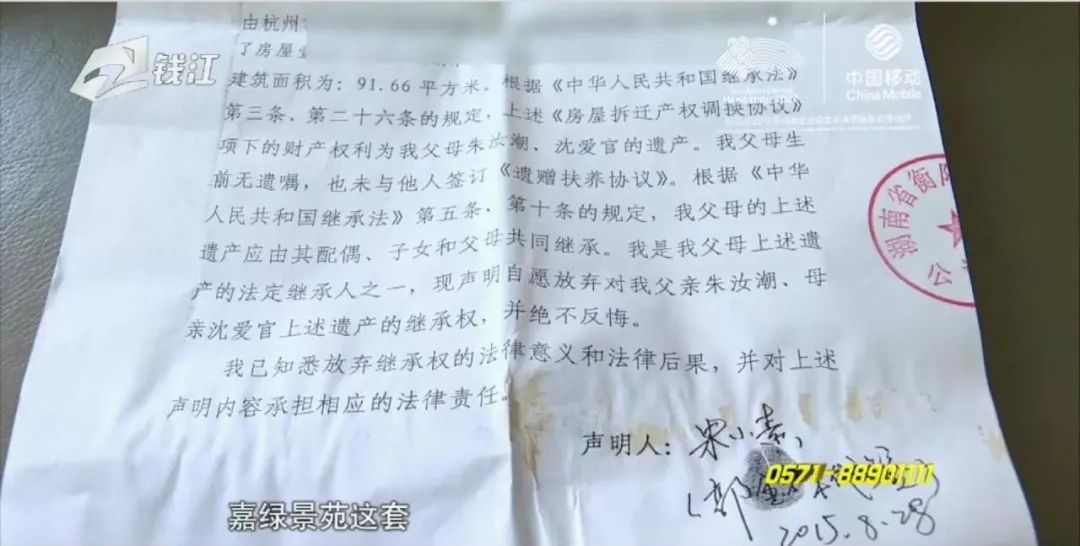 由杭州
了房屋
钱江
中国移动
China Mobile
建筑面积为：91.66平方米。根据《中华人民共和国继承法》
第三条、第二十六条的规定，上述《房屋拆迁产权调换协议》
项下的财产权利为我父母朱汝潮、沈爱官的遗产。我父母生
前无遗嘱，也未与他人签订《遗赠扶养协议》。根据《中华
人民共和国继承法》第五条、第十条的规定，我父母的上述
遗产应由其配偶、子女和父母共同继承。我是我父母上述遗
产的法定继承人之一，现声明自愿放弃对我父亲朱汝潮、母
亲沈爱官上述遗产的继承权，并绝不反悔。
我已知悉放弃继承权的法律意义和法律后果，并对上述
声明内容承担相应的法律责任。
湖南省衡阳
公
声明人：
0571-88901111
2015.8.28
嘉绿景苑这套